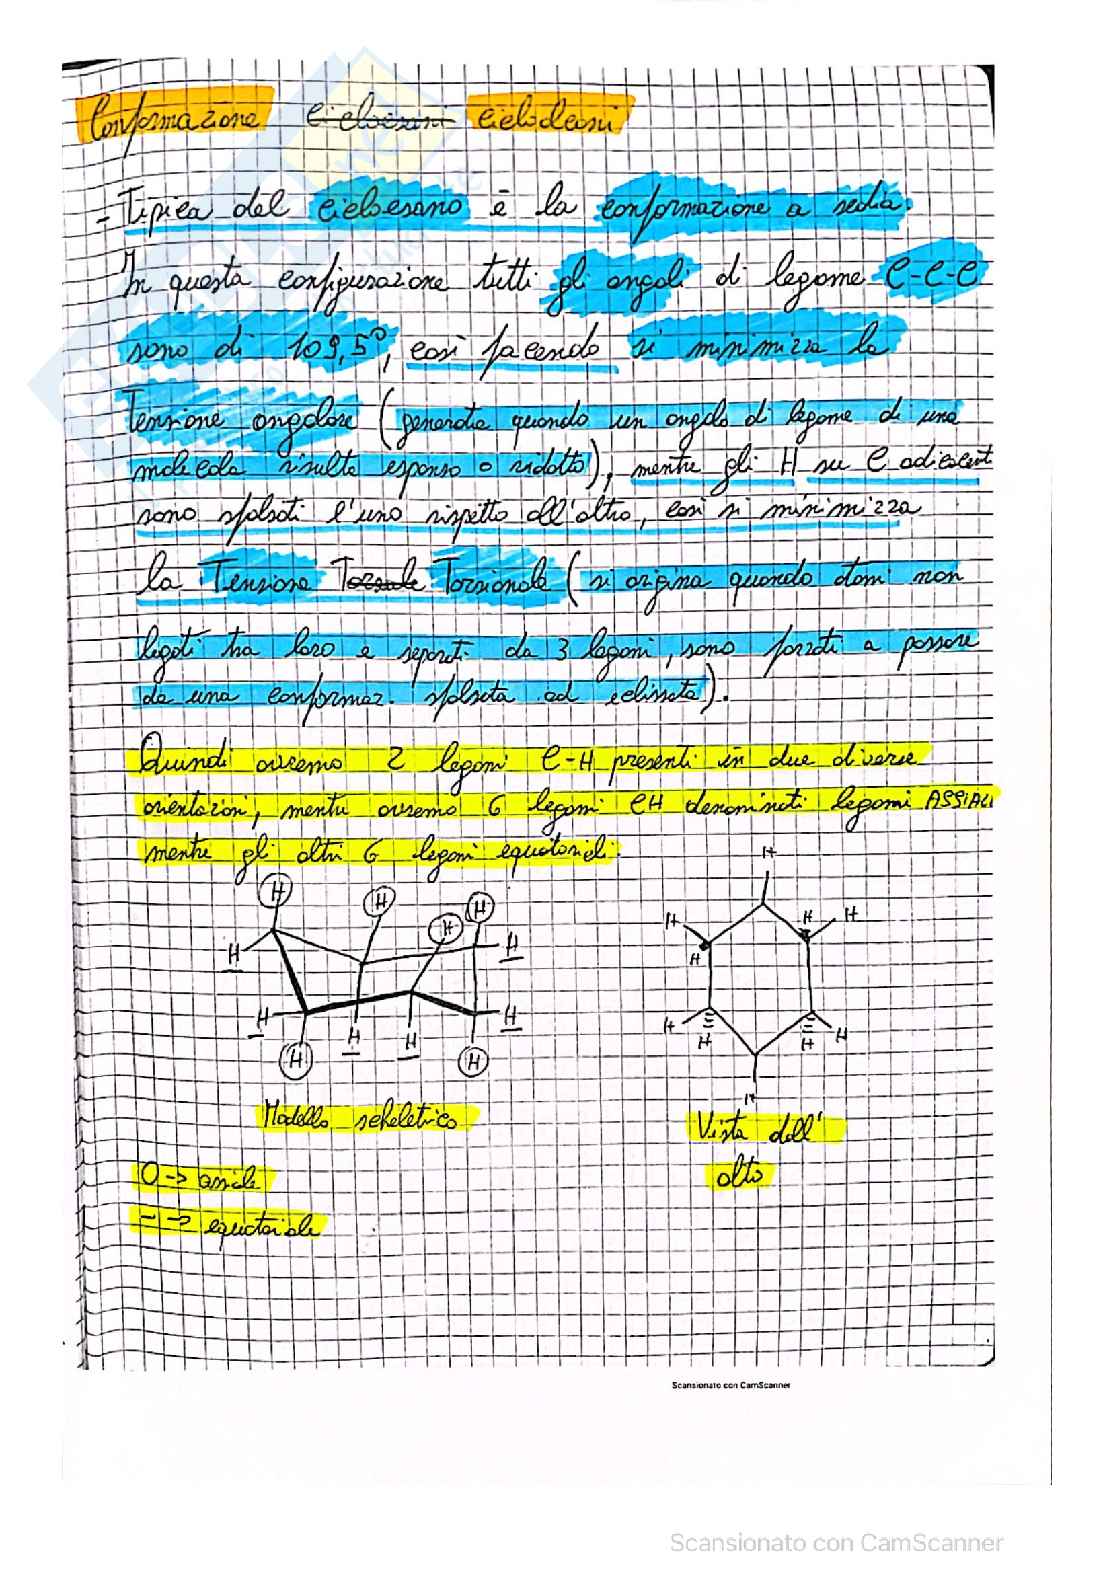 Conformazione cicloesani cicloalcani
- Tipica del cicloesano è la conformazione a sedia.
In questa configurazione tutti gli angoli di legame C-C-C
sono di 109,5°, così facendo si minimizza la
Tensione angolare (generata quando un angolo di legame di una
molecola risulta espanso o ridotto), mentre gli H su C adiacenti
sono sfalsati l'uno rispetto all'altro, così si minimizza
la Tensione Torsionale (si origina quando atomi non
legati tra loro e separati da 3 legami, sono forzati a passare
da una conformaz. sfalsata ad eclissata).
Quindi avremo 2 legami C-H presenti in due diverse
orientazioni, mentre avremo 6 legami CH denominati legami ASSIALI
mentre gli altri 6 legami equatoriali.
H H H H H H
H H H H H H
H H H H H
H H H H H
H H
Modello scheletrico
Vista dall'
alto
O -> assiale
- -> equatoriale
Scansionato con CamScanner
Scansionato con CamScanner